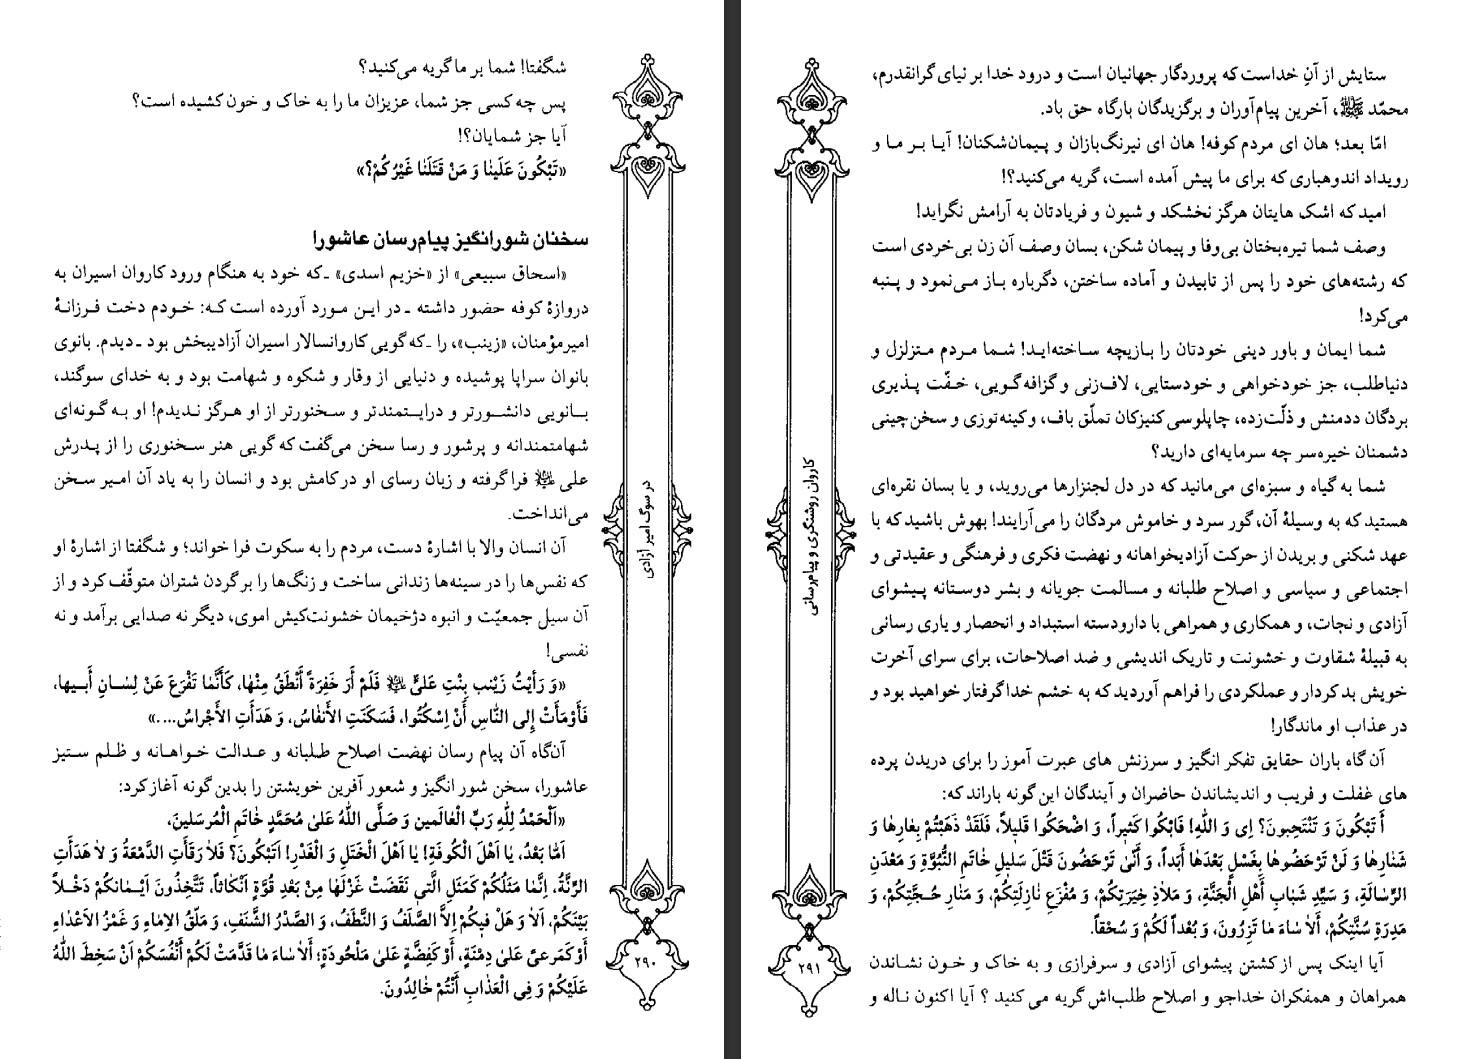 شگفتا! شما بر ما گریه می‌کنید؟
پس چه کسی جز شما، عزیزان ما را به خاک و خون کشیده است؟
آیا جز شمایان؟!
«تَبْكُونَ عَلَيْنٰا وَ مَنْ قَتَلَنٰا غَيْرُكُمْ؟»
سخنان شورانگیز پیام‌رسان عاشورا
«اسحاق سبیعی» از «خزیم اسدی» ـ که خود به هنگام ورود کاروان اسیران به
دروازهٔ کوفه حضور داشته ـ در این مورد آورده است که: خودم دخت فرزانهٔ
امیرمؤمنان، «زینب»، را ـ که گویی کاروانسالار اسیران آزادیبخش بود ـ دیدم. بانوی
بانوان سراپا پوشیده و دنیایی از وقار و شکوه و شهامت بود و به خدای سوگند،
بانویی دانشورتر و درایتمندتر و سخنورتر از او هرگز ندیدم! او به گونه‌ای
شهامتمندانه و پرشور و رسا سخن می‌گفت که گویی هنر سخنوری را از پدرش
علی ﷷ فرا گرفته و زبان رسای او در کامش بود و انسان را به یاد آن امیر سخن
می‌انداخت.
آن انسان والا با اشارهٔ دست، مردم را به سکوت فرا خواند؛ و شگفتا از اشارهٔ او
که نفس‌ها را در سینه‌ها زندانی ساخت و زنگ‌ها را بر گردن شتران متوقّف کرد و از
آن سیل جمعیّت و انبوه دژخیمان خشونت‌کیش اموی، دیگر نه صدایی برآمد و نه
نفسی!
«وَ رَأَيْتُ زَيْنَبَ بِنْتِ عَلىٍّ ﷷ فَلَمْ أَرَ خَفِرَةً أَنْطَقَ مِنْهٰا، كَأَنَّمٰا تَفْرَعَ عَنْ لِسٰانِ أَبيها،
فَأَوْمَأَتْ إِلى النّٰاسِ أَنْ اِسْكُتُوا، فَسَكَنَتِ الأَنفٰاسُ، وَ هَدَأَتِ الأَجْراسُ....»
آن‌گاه آن پیام رسان نهضت اصلاح طلبانه و عدالت خواهانه و ظلم ستیز
عاشورا، سخن شور انگیز و شعور آفرین خویشتن را بدین گونه آغاز کرد:
«اَلْحَمْدُ لِلّٰهِ رَبِّ الْعٰالَمين وَ صَلَّى اللّٰهُ عَلىٰ مُحَمَّدٍ خٰاتَمِ الْمُرسَلينَ،
اَمّٰا بَعْدُ، يٰا اَهْلَ الْكُوفَةِ! يٰا اَهْلَ الْخَتَلِ وَ الْغَدْرِ! اَتَبْكُونَ؟ فَلاٰ رَقَأَتِ الدَّمْعَةُ وَ لاٰ هَدَأَتِ
الرَّنَّةُ، اِنَّمٰا مَثَلُكُمْ كَمَثَلِ الَّتى نَقَضَتْ غَزْلَهٰا مِنْ بَعْدِ قُوَّةٍ أَنْكٰاثاً، تَتَّخِذُونَ اَيْمٰانَكُمْ دَخَلاً
بَيْنَكُمْ، اَلاٰ وَ هَلْ فيكُمْ اِلاَّ الصَّلَفُ وَ النَّطَفُ، وَ الصَّدْرُ الشَّنَفِ، وَ مَلْقُ الاِماءِ وَ غَمْزُ الاَعْدٰاءِ
أَوْ كَمَرعىً عَلىٰ دِمْنَةٍ، أَوْ كَفِضَّةٍ عَلىٰ مَلْحُودَةٍ؛ أَلاٰ سٰاءَ مٰا قَدَّمَتْ لَكُمْ أَنْفُسَكُمْ اَنْ سَخِطَ اللّٰهُ
عَلَيْكُمْ وَ فِي الْعَذٰابِ أَنْتُمْ خٰالِدُونَ.
در سوگ امیر آزادی
۲۹۰
ستایش از آنِ خداست که پروردگار جهانیان است و درود خدا بر نیای گرانقدرم،
محمّد ﷺ، آخرین پیام‌آوران و برگزیدگان بارگاه حق باد.
امّا بعد؛ هان ای مردم کوفه! هان ای نیرنگ‌بازان و پیمان‌شکنان! آیا بر ما و
رویداد اندوهباری که برای ما پیش آمده است، گریه می‌کنید؟!
امید که اشک هایتان هرگز نخشکد و شیون و فریادتان به آرامش نگراید!
وصف شما تیره‌بختان بی‌وفا و پیمان شکن، بسان وصف آن زن بی‌خردی است
که رشته‌های خود را پس از تابیدن و آماده ساختن، دگرباره باز می‌نمود و پنبه
می‌کرد!
شما ایمان و باور دینی خودتان را بازیچه ساخته‌اید! شما مردم متزلزل و
دنیاطلب، جز خودخواهی و خودستایی، لاف‌زنی و گزافه‌گویی، خفّت پذیری
بردگان ددمنش و ذلّت‌زده، چاپلوسی کنیزکان تملّق باف، و کینه‌توزی و سخن‌چینی
دشمنان خیره‌سر چه سرمایه‌ای دارید؟
شما به گیاه و سبزه‌ای می‌مانید که در دل لجنزارها می‌روید، و یا بسان نقره‌ای
هستید که به وسیلهٔ آن، گور سرد و خاموش مردگان را می‌آرایند! بهوش باشید که با
عهد شکنی و بریدن از حرکت آزادیخواهانه و نهضت فکری و فرهنگی و عقیدتی و
اجتماعی و سیاسی و اصلاح طلبانه و مسالمت جویانه و بشر دوستانه پیشوای
آزادی و نجات، و همکاری و همراهی با دارودسته استبداد و انحصار و یاری رسانی
به قبیلهٔ شقاوت و خشونت و تاریک اندیشی و ضد اصلاحات، برای سرای آخرت
خویش بد کردار و عملکردی را فراهم آوردید که به خشم خدا گرفتار خواهید بود و
در عذاب او ماندگار!
آن گاه باران حقایق تفکر انگیز و سرزنش های عبرت آموز را برای دریدن پرده
های غفلت و فریب و اندیشاندن حاضران و آیندگان این گونه باراند که:
أَ تَبْكُونَ وَ تَنْتَحِبونَ؟ اِى وَ اللّٰهِ! فَابْكُوا كَثيراً، وَ اضْحَكُوا قَليلاً، فَلَقَدْ ذَهَبْتُمْ بِعٰارِهٰا وَ
شَنٰارِهٰا وَ لَنْ تَرْحَضُوهٰا بِغَسْلٍ بَعْدَهٰا أَبَداً، وَ أَنّىٰ تَرْحَضُونَ قَتْلَ سَليلِ خٰاتَمِ النُّبُوَّةِ وَ مَعْدَنِ
الرِّسٰالَةِ، وَ سَيِّدِ شَبٰابِ أَهْلِ الْجَنَّةِ، وَ مَلاٰذِ خِيَرَتِكُمْ، وَ مَفْزَعِ نٰازِلَتِكُمْ، وَ مَنٰارِ حُجَّتِكُمْ، وَ
مَدِرَةِ سُنَّتِكُمْ، أَلاٰ سٰاءَ مٰا تَزِرُونَ، وَ بُعْداً لَكُمْ وَ سُحْقاً.
آیا اینک پس از کشتن پیشوای آزادی و سرفرازی و به خاک و خون نشاندن
همراهان و همفکران خداجو و اصلاح طلب‌اش گریه می کنید ؟ آیا اکنون ناله و
کاروان روشنگری و پیام‌رسانی
۲۹۱